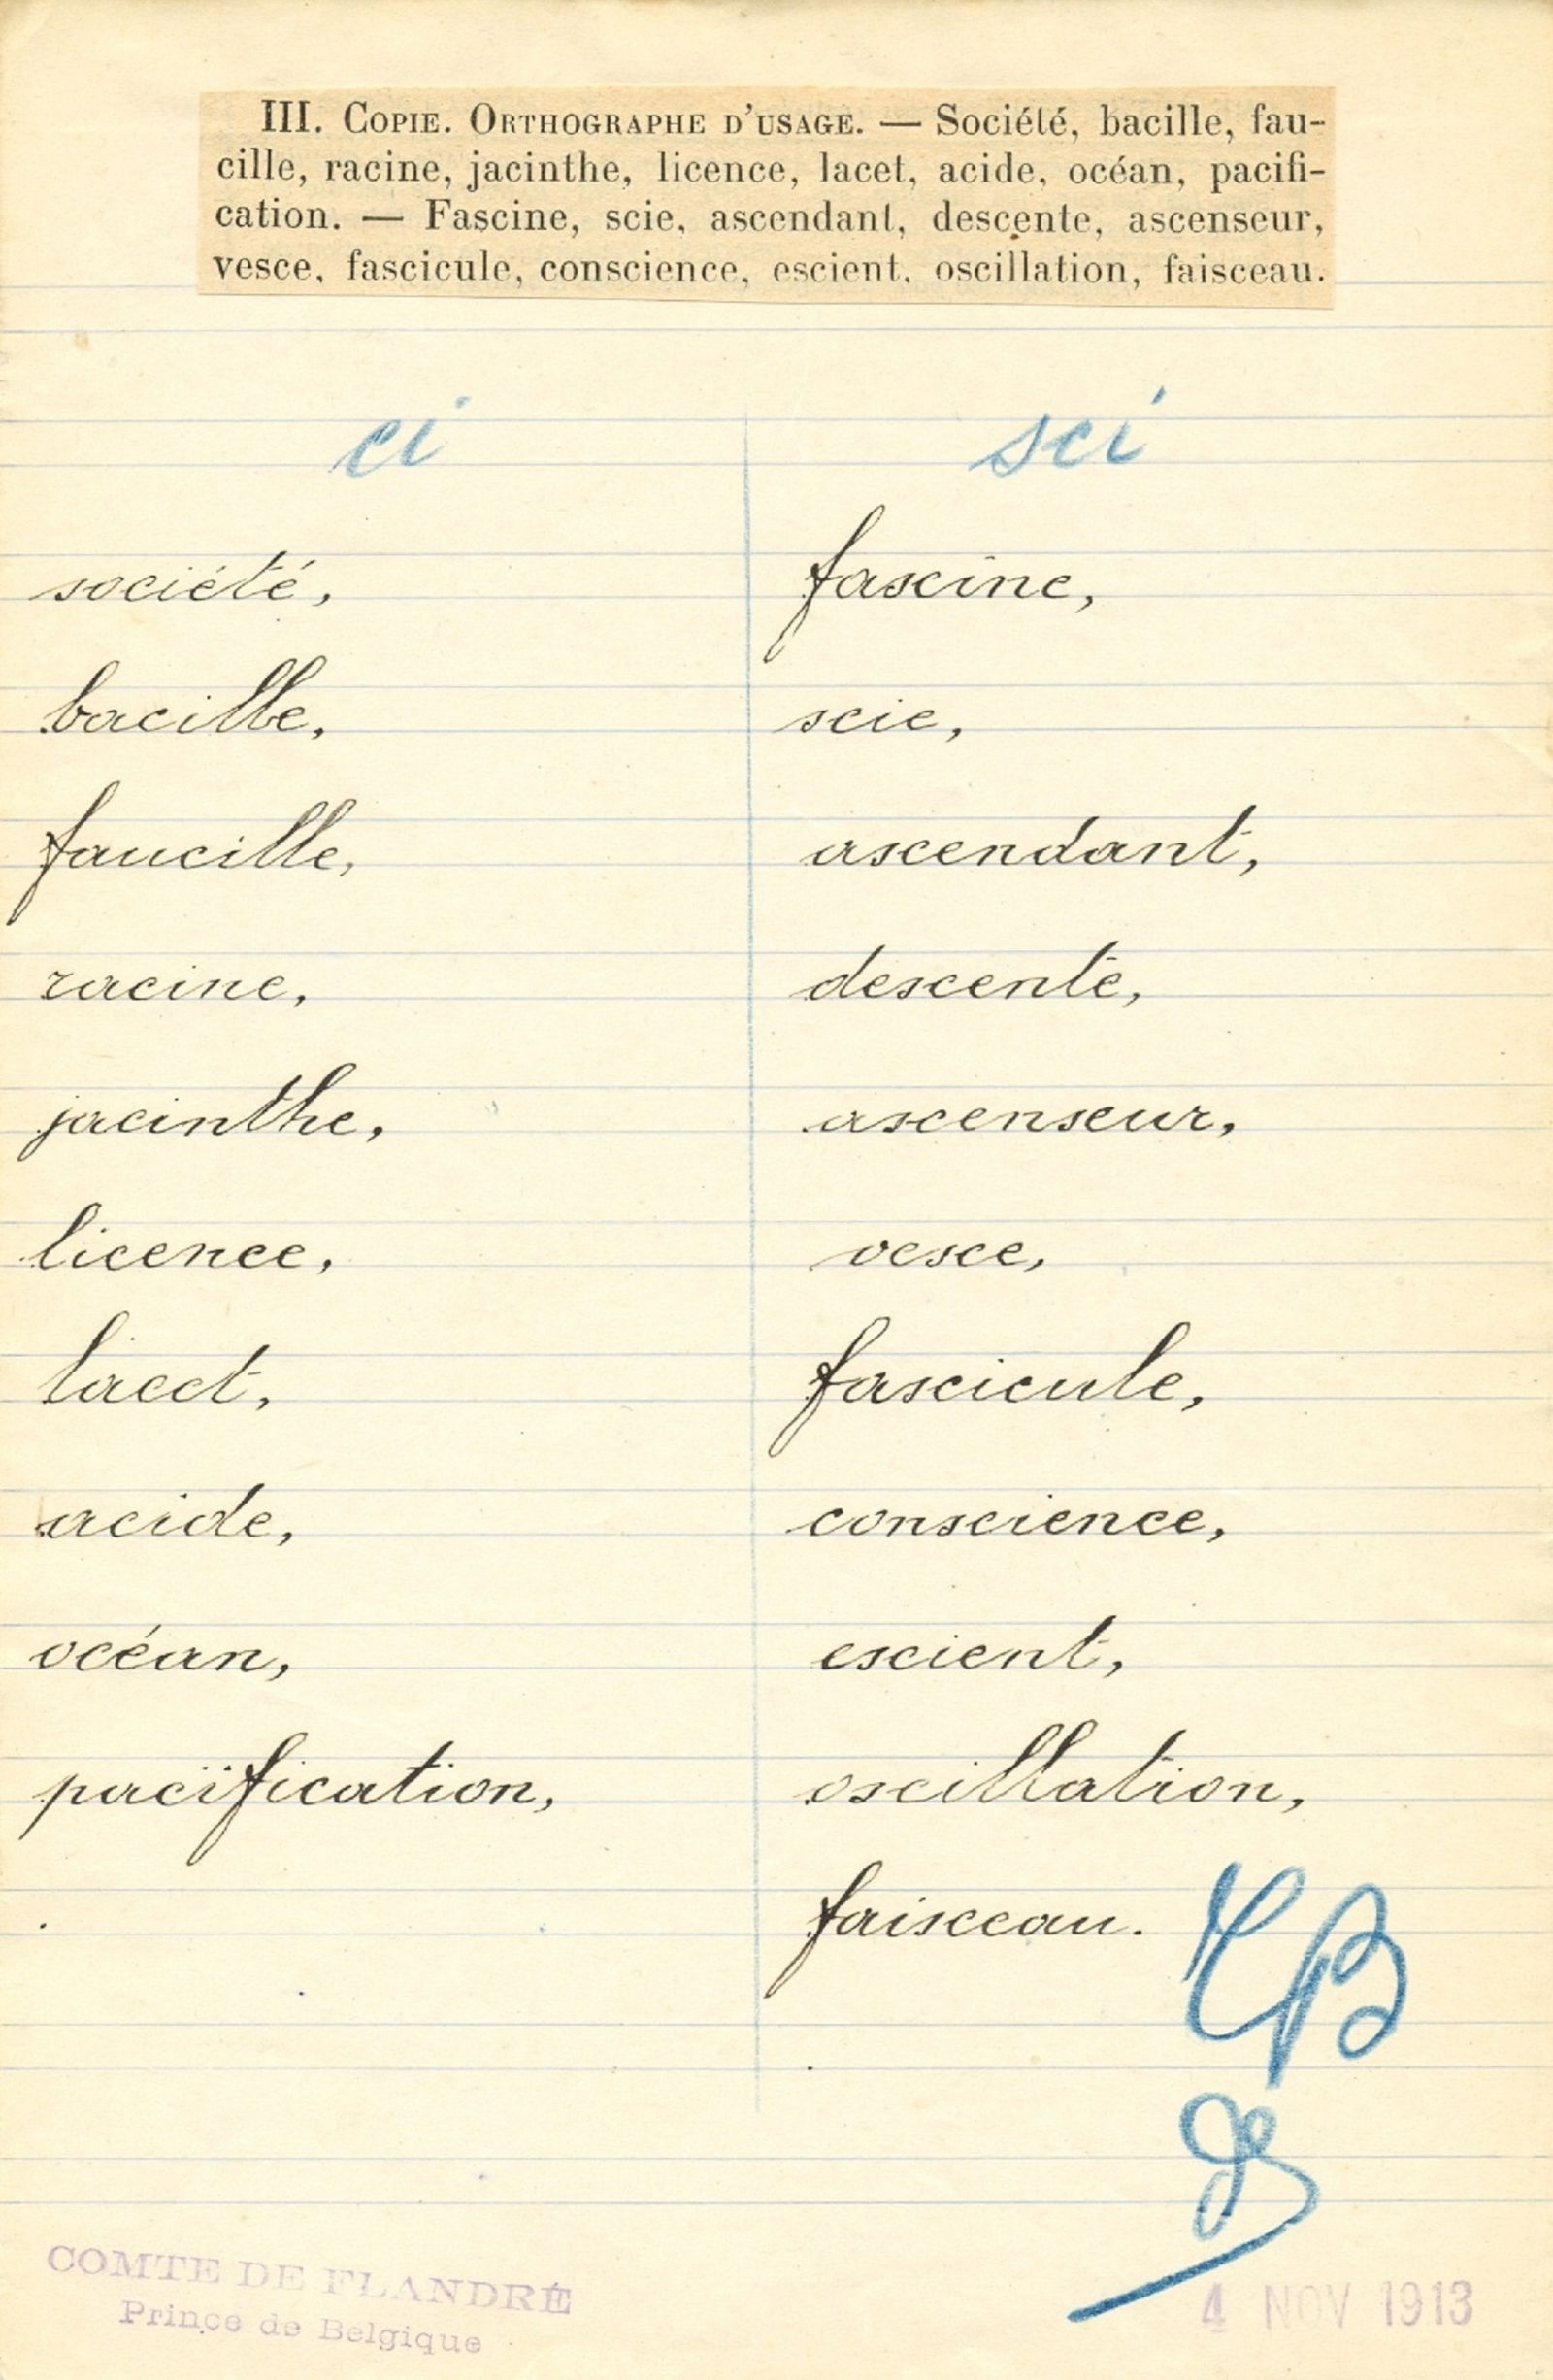 III. COPIE. ORTHOGRAPHE D'USAGE. — Société, bacille, fau-
cille, racine, jacinthe, licence, lacet, acide, océan, pacifi-
cation. — Fascine, scie, ascendant, descente, ascenseur,
vesce, fascicule, conscience, escient, oscillation, faisceau.
ci
société,
bacille,
faucille,
racine,
jacinthe,
licence,
lacet,
acide,
océan,
pacification,
sci
fascine,
scie,
ascendant,
descente,
ascenseur,
vesce,
fascicule,
conscience,
escient,
oscillation,
faisceau.
TB
COMTE DE FLANDRE
Prince de Belgique
4 NOV 1913